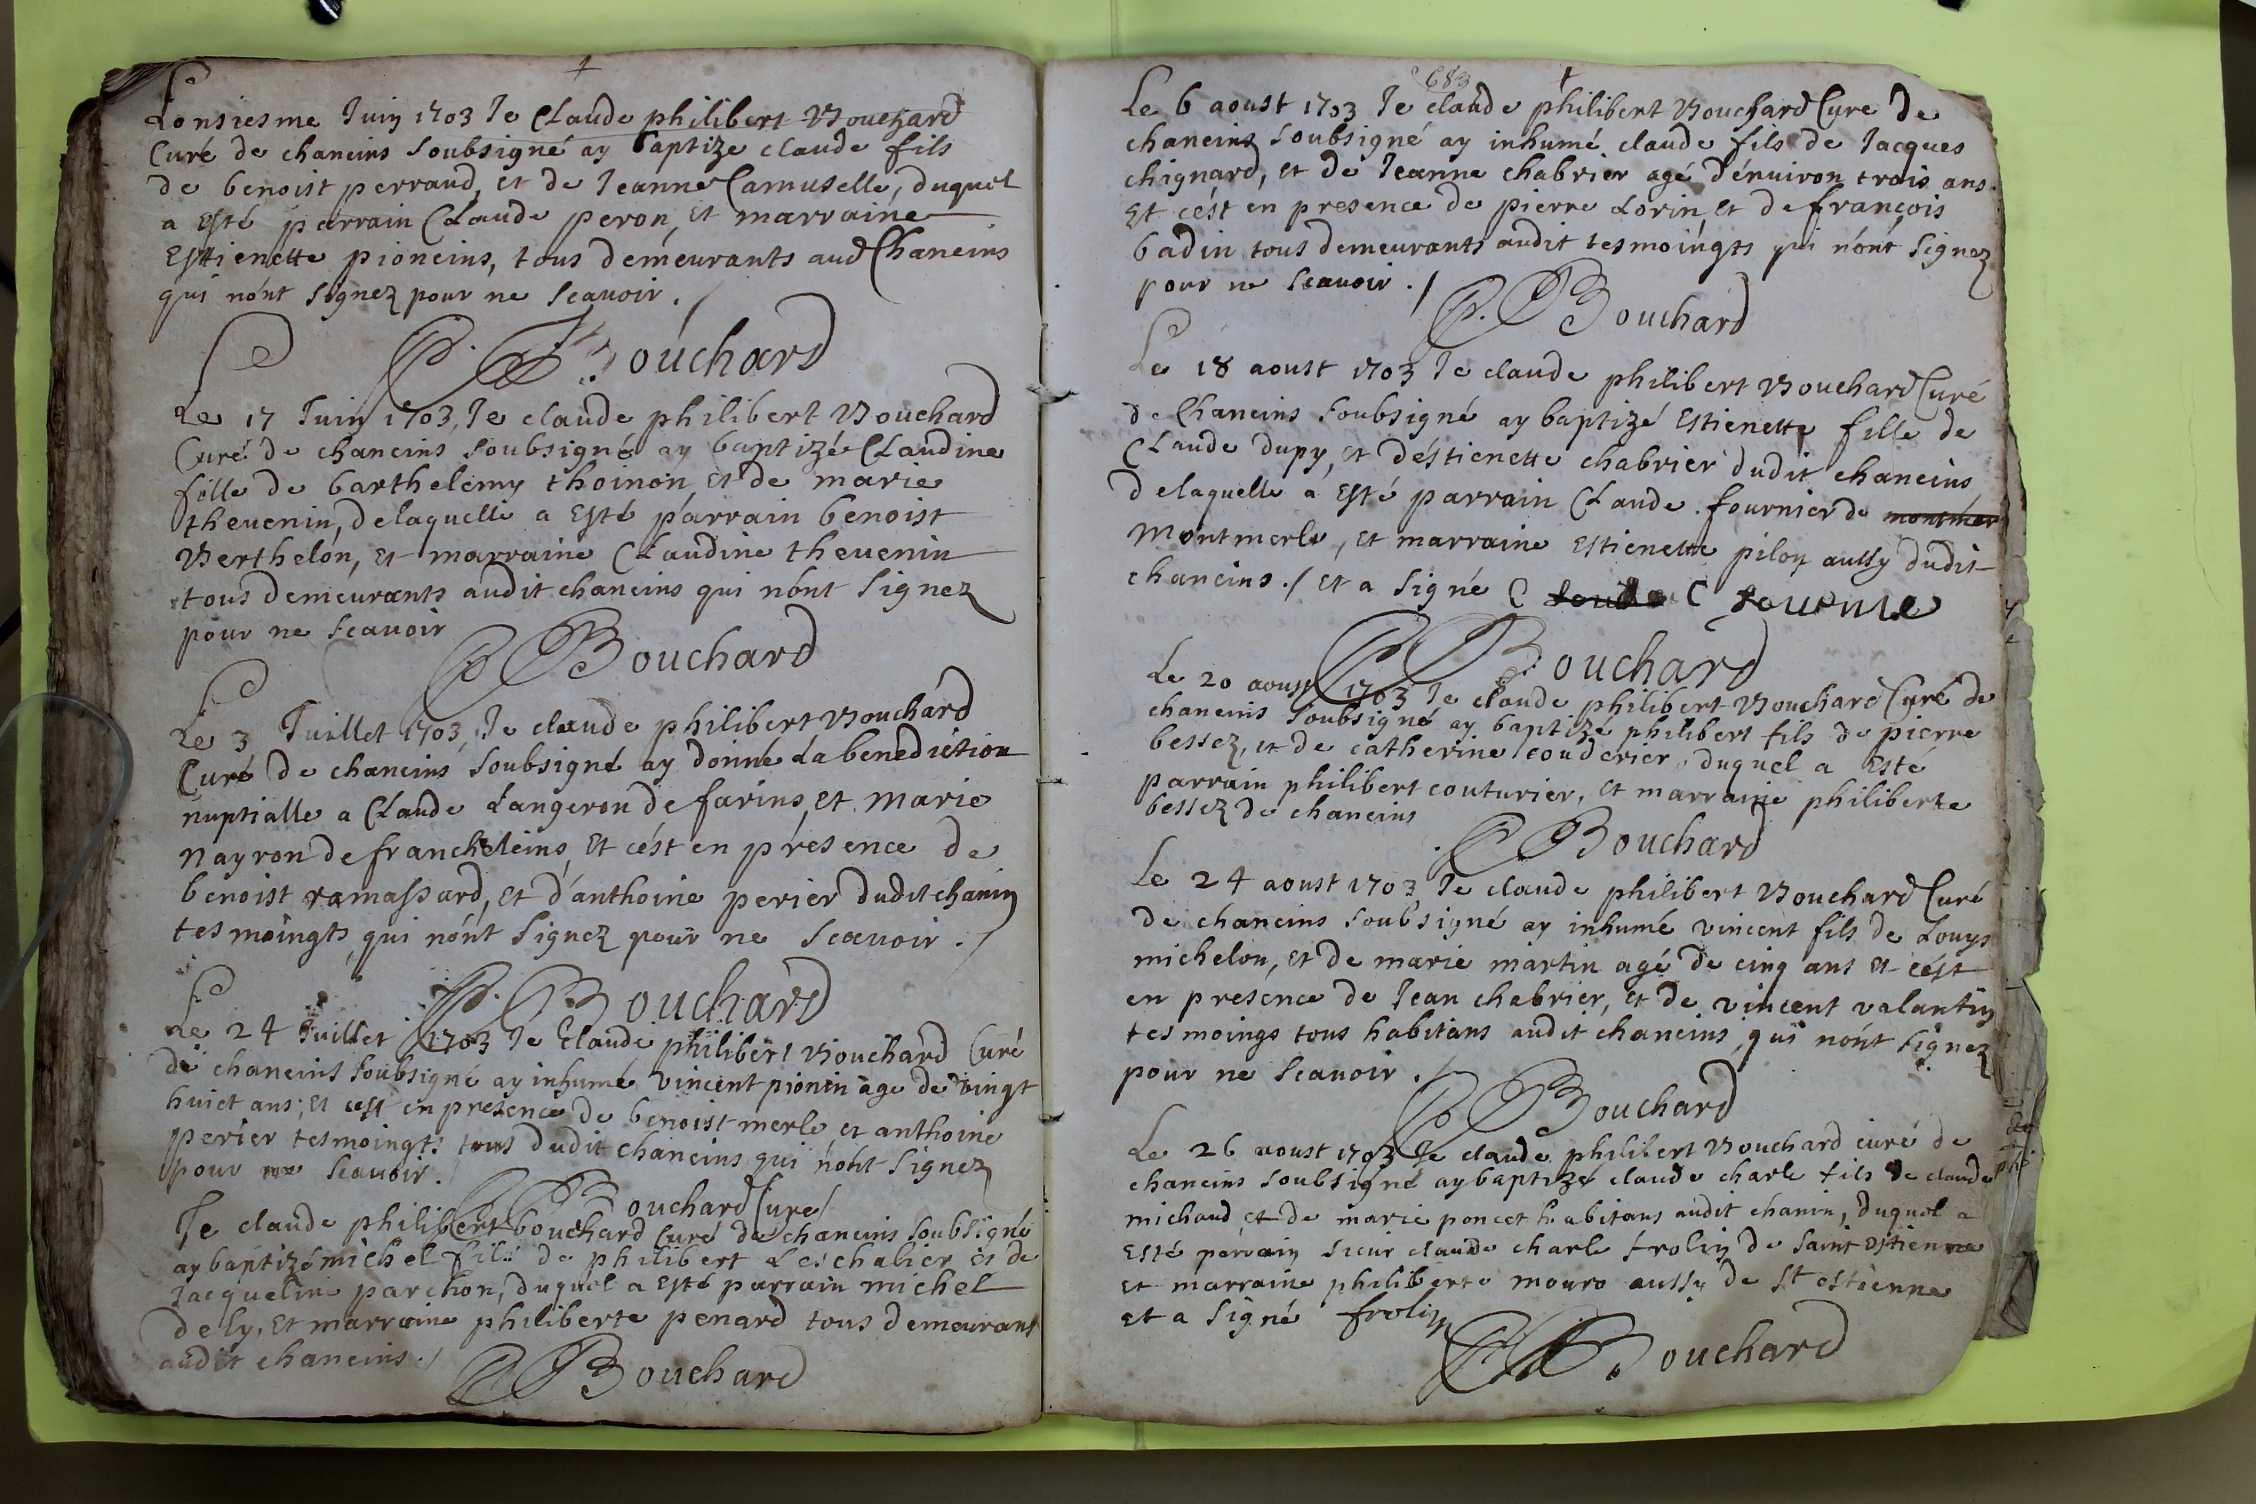 Lonsiesme Juin 1703 Je Claude philibert Bouchard
Curé de chaneins soubsigné ay baptize claude fils
de benoist perraud, et de Jeanne Camuselle, duquel
a esté parrain Claude peron, et marraine
Estienette pioneins, tous demeurants aud Chaneins
qui nont signez pour ne scavoir ./
Bouchard
Le 17 Juin 1703, Je claude philibert Bouchard
Curé de chaneins soubsigné ay baptizée Claudine
fille de barthelemy thoinon, et de marie
thevenin, delaquelle a esté parrain benoist
Berthelon, et marraine Claudine thevenin
tous demeurants audit chaneins qui nont signez
pour ne scavoir
Bouchard
Le 3 Juillet 1703, Je claude philibert Bouchard
Curé de chaneins soubsigné ay donné La benediction
nuptialle a Claude Langeron de farins, et marie
nayron de francheleins, et cést en présence de
benoist ramassard, et d'anthoine perier dudit chanin
tesmoingts qui nont signez pour ne scavoir ./
Bouchard
Le 24 Juillet 1703 Je Claude philibert Bouchard Curé
de chaneins soubsigné ay inhumé vincent pionin age de vingt
huict ans, et cest en presence de benoist merle, et anthoine
perier tesmoingts tous dudit chaneins qui nont signez
pour ne scavoir.
Bouchard Cure
Je claude philibert bouchard Curé de chaneins soubsigné
ay baptizé michel fils de philibert Leschalier et de
Jacqueline parchon, duquel a esté parrain michel
dely, et marraine philiberte penard tous demeurant
audit chaneins ./
Bouchard
683
Le 6 aoust 1703 Je claude philibert Bouchard Cure de
chaneins soubsigné ay inhumé claude fils de Jacques
chignard, et de Jeanne chabrier agé dénuiron trois ans
Et cést en presence de pierre Lorin, et de françois
badin tous demeurants audit tesmoingts qui nónt signez
pour ne scavoir ./
Bouchard
Le 18 aoust 1703 Je claude philibert Bouchard Curé
de Chaneins soubsigné ay baptizé Estienette fille de
Claude dupy, et déstienette chabrier dudit chaneins
delaquelle a esté parrain Claude fournier de montmer
Montmerle, et marraine Estienette pilon aussy dudit
chaneins ./ et a signé C C fournie
Bouchard
Le 20 aoust 1703 Je claude philibert Bouchard Curé de
chaneins soubsigné ay baptizé philibert fils de pierre
bessez, et de catherine couderier, duquel a esté
parrain philibert couturier, et marraine philiberte
bessez de chaneins
Bouchard
Le 24 aoust 1703 Je claude philibert Bouchard Curé
de chaneins soubsigné ay inhumé vincent fils de Louys
michelon, et de marie martin agé de cinq ans et cést
en presence de Jean chabrier, et de vincent valantin
tesmoings tous habitans audit chaneins, qui nónt signez
pour ne scavoir ./
Bouchard
Le 26 aoust 1703 Je claude philibert Bouchard curé de
chaneins soubsigné ay baptizé claude charle fils de claude
michaud et de marie poncet habitans audit chanin, duquel a
Esté parrain sieur claude charle frolin de saint estienne
et marraine philiberte mouro aussy de st estienne
et a signé frolin
Bouchard